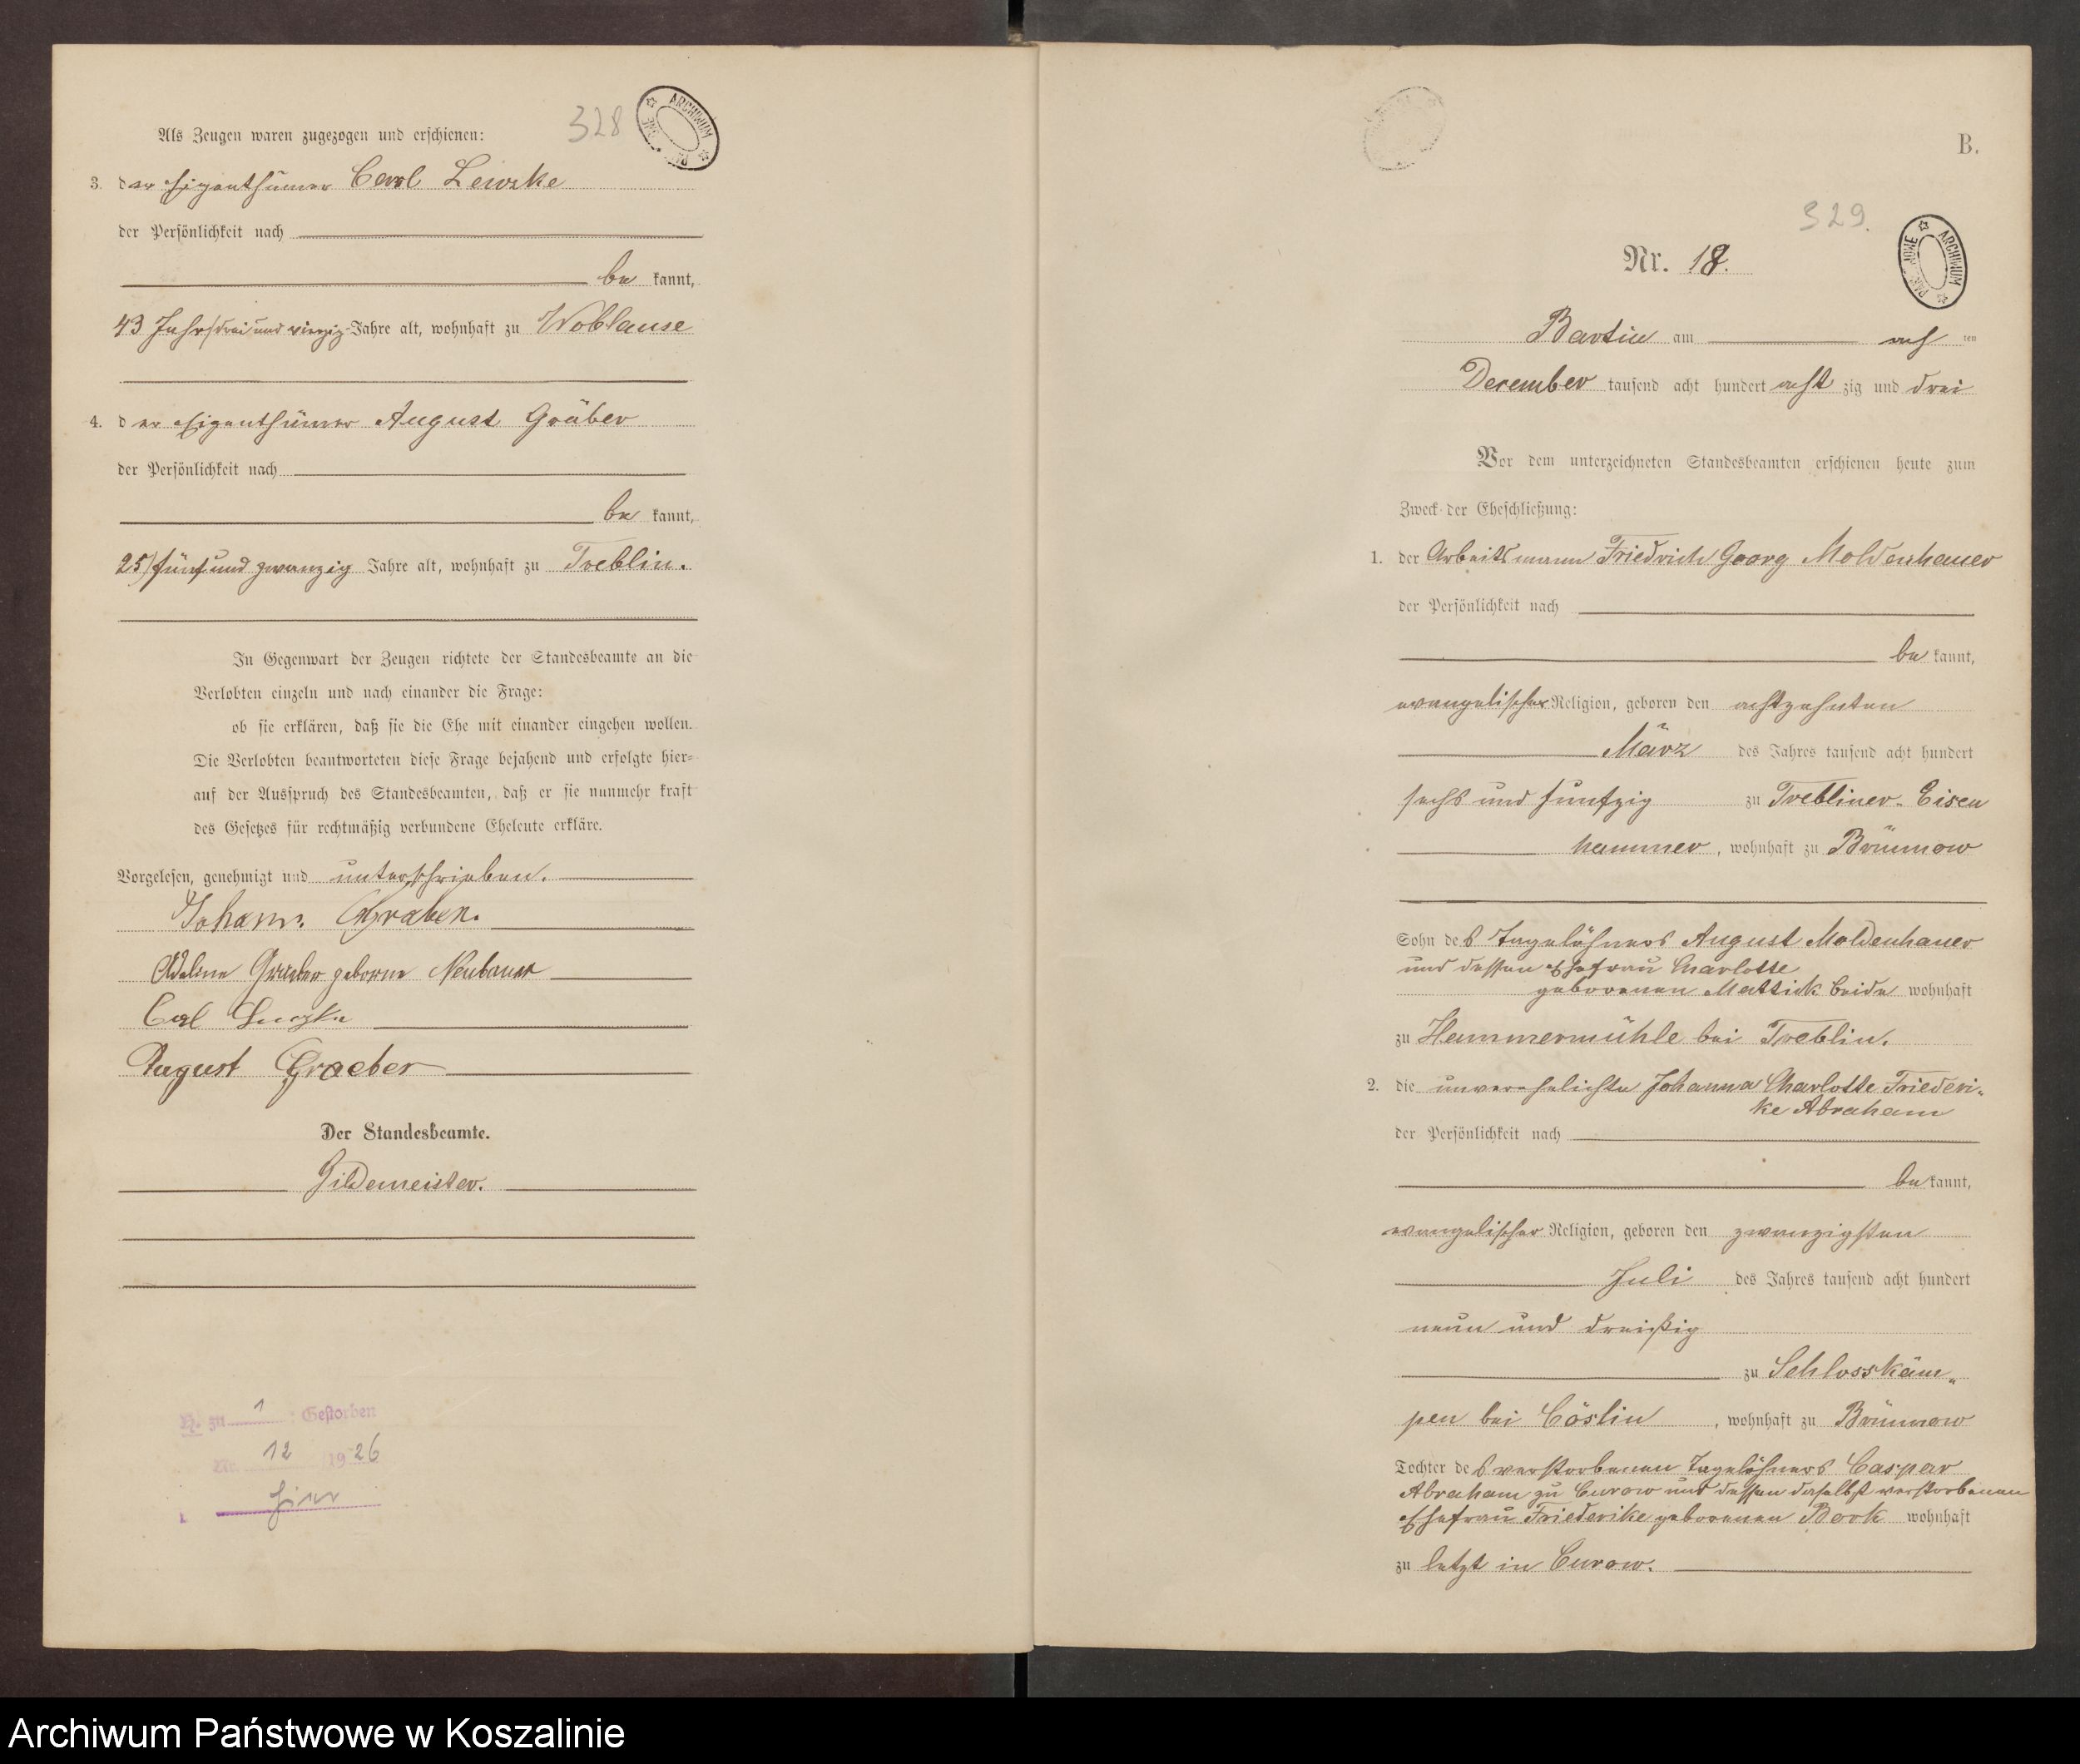 328
ARCHIWUM
Als Zeugen waren zugezogen und erschienen:
3. der Eigenthümer Carl Lewzke
der Persönlichkeit nach
be kannt,
43 Jahr/drei und vierzig Jahre alt, wohnhaft zu Woblanse
4. der Eigenthümer August Gräber
der Persönlichkeit nach
be kannt,
25/fünf und zwanzig Jahre alt, wohnhaft zu Treblin.
In Gegenwart der Zeugen richtete der Standesbeamte an die
Verlobten einzeln und nach einander die Frage:
ob sie erklären, daß sie die Ehe mit einander eingehen wollen.
Die Verlobten beantworteten diese Frage bejahend und erfolgte hier-
auf der Ausspruch des Standesbeamten, daß er sie nunmehr kraft
des Gesetzes für rechtmäßig verbundene Eheleute erkläre.
Vorgelesen, genehmigt und unterschrieben.
Johann Graber.
Adeline Graeber geborne Neubauer
Carl
August Graeber
Der Standesbeamte.
Gildemeister.
H. zu 1 : Gestorben
Nr. 12 /1926
hier
B.
329.
ARCHIWUM PAŃSTWOWE
Nr. 18.
Bartin am acht ten
December tausend acht hundert acht zig und drei
Vor dem unterzeichneten Standesbeamten erschienen heute zum
Zweck der Eheschließung:
1. der Arbeitsmann Friedrich Georg Moldenhauer
der Persönlichkeit nach
be kannt,
evangelischer Religion, geboren den achtzehnten
März des Jahres tausend acht hundert
sechs und fünfzig zu Trebliner-Eisen
hammer, wohnhaft zu Brünnow
Sohn des Tagelöhners August Moldenhauer
und dessen Ehefrau Charlotte
geborenen Mattick beide wohnhaft
zu Hammermühle bei Treblin.
2. die unverehelichte Johanna Charlotte Friederi-
ke Abraham
der Persönlichkeit nach
be kannt,
evangelischer Religion, geboren den zwanzigsten
Juli des Jahres tausend acht hundert
neun und dreißig
zu Schlosskäm-
pen bei Cöslin, wohnhaft zu Brünnow
Tochter des verstorbenen Tagelöhners Caspar
Abraham zu Curow und dessen daselbst verstorbenen
Ehefrau Friederike geborenen Bork wohnhaft
zu letzt in Curow.
Archiwum Państwowe w Koszalinie